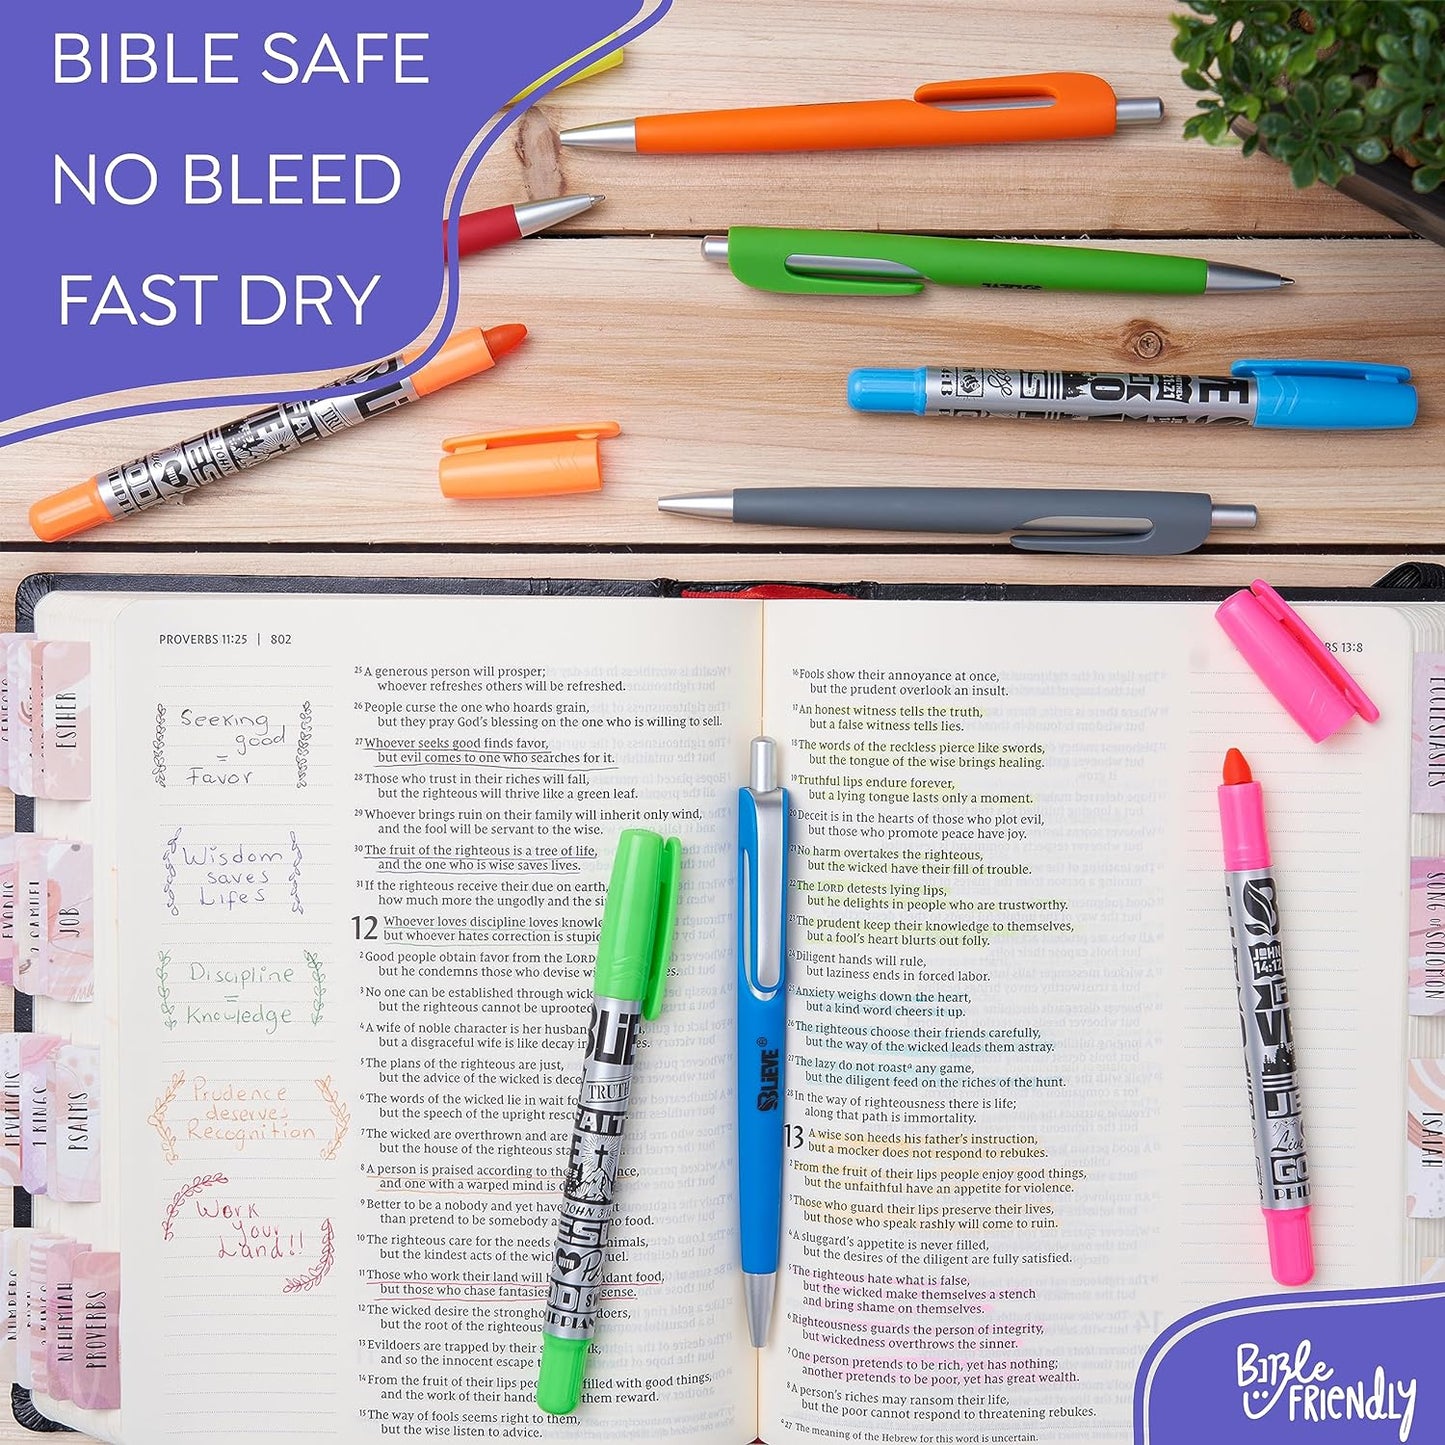 BIBLE SAFE
NO BLEED
FAST DRY
BLIEVE
PROVERBS 11:25 | 802
BS 13:8
ESTHER
JOB
PSALMS
NEHEMIAH
PROVERBS
Seeking
good
=
Favor
Wisdom
saves
Lifes
Discipline
=
Knowledge
Prudence
deserves
Recognition
Work
Your
Land!!
25 A generous person will prosper;
whoever refreshes others will be refreshed.
26 People curse the one who hoards grain,
but they pray God's blessing on the one who is willing to sell.
27 Whoever seeks good finds favor,
but evil comes to one who searches for it.
28 Those who trust in their riches will fall,
but the righteous will thrive like a green leaf.
29 Whoever brings ruin on their family will inherit only wind,
and the fool will be servant to the wise.
30 The fruit of the righteous is a tree of life,
and the one who is wise saves lives.
31 If the righteous receive their due on earth,
how much more the ungodly and the sin
12 Whoever loves discipline loves knowle
but whoever hates correction is stupid
2 Good people obtain favor from the LORD
but he condemns those who devise w s.
3 No one can be established through wick
but the righteous cannot be uprooted
4 A wife of noble character is her husban
but a disgraceful wife is like decay in s.
5 The plans of the righteous are just,
but the advice of the wicked is dece
6 The words of the wicked lie in wait fo
but the speech of the upright rescu
7 The wicked are overthrown and are
but the house of the righteous sta
8 A person is praised according to the nce,
and one with a warped mind is d
9 Better to be a nobody and yet have
than pretend to be somebody a no food.
10 The righteous care for the needs nimals,
but the kindest acts of the wick ruel.
11 Those who work their land will h ndant food,
but those who chase fantasies sense.
12 The wicked desire the strongho doers,
but the root of the righteous
13 Evildoers are trapped by their s
and so the innocent escape t
14 From the fruit of their lips peo filled with good things,
and the work of their hand em reward.
15 The way of fools seems right to them,
but the wise listen to advice.
16 Fools show their annoyance at once,
but the prudent overlook an insult.
17 An honest witness tells the truth,
but a false witness tells lies.
18 The words of the reckless pierce like swords,
but the tongue of the wise brings healing.
19 Truthful lips endure forever,
but a lying tongue lasts only a moment.
20 Deceit is in the hearts of those who plot evil,
but those who promote peace have joy.
21 No harm overtakes the righteous,
but the wicked have their fill of trouble.
22 The LORD detests lying lips,
but he delights in people who are trustworthy.
23 The prudent keep their knowledge to themselves,
but a fool's heart blurts out folly.
24 Diligent hands will rule,
but laziness ends in forced labor.
25 Anxiety weighs down the heart,
but a kind word cheers it up.
26 The righteous choose their friends carefully,
but the way of the wicked leads them astray.
27 The lazy do not roast a any game,
but the diligent feed on the riches of the hunt.
28 In the way of righteousness there is life;
along that path is immortality.
13 A wise son heeds his father's instruction,
but a mocker does not respond to rebukes.
2 From the fruit of their lips people enjoy good things,
but the unfaithful have an appetite for violence.
3 Those who guard their lips preserve their lives,
but those who speak rashly will come to ruin.
4 A sluggard's appetite is never filled,
but the desires of the diligent are fully satisfied.
5 The righteous hate what is false,
but the wicked make themselves a stench
and bring shame on themselves.
6 Righteousness guards the person of integrity,
but wickedness overthrows the sinner.
7 One person pretends to be rich, yet has nothing;
another pretends to be poor, yet has great wealth.
8 A person's riches may ransom their life,
but the poor cannot respond to threatening rebukes.
a 27 The meaning of the Hebrew for this word is uncertain.
BLIEVE ®
TRUTH
JOHN
14:12
ECCLESIASTES
SONG of SOLOMON
ISAIAH
BiBle
FRiENDLY